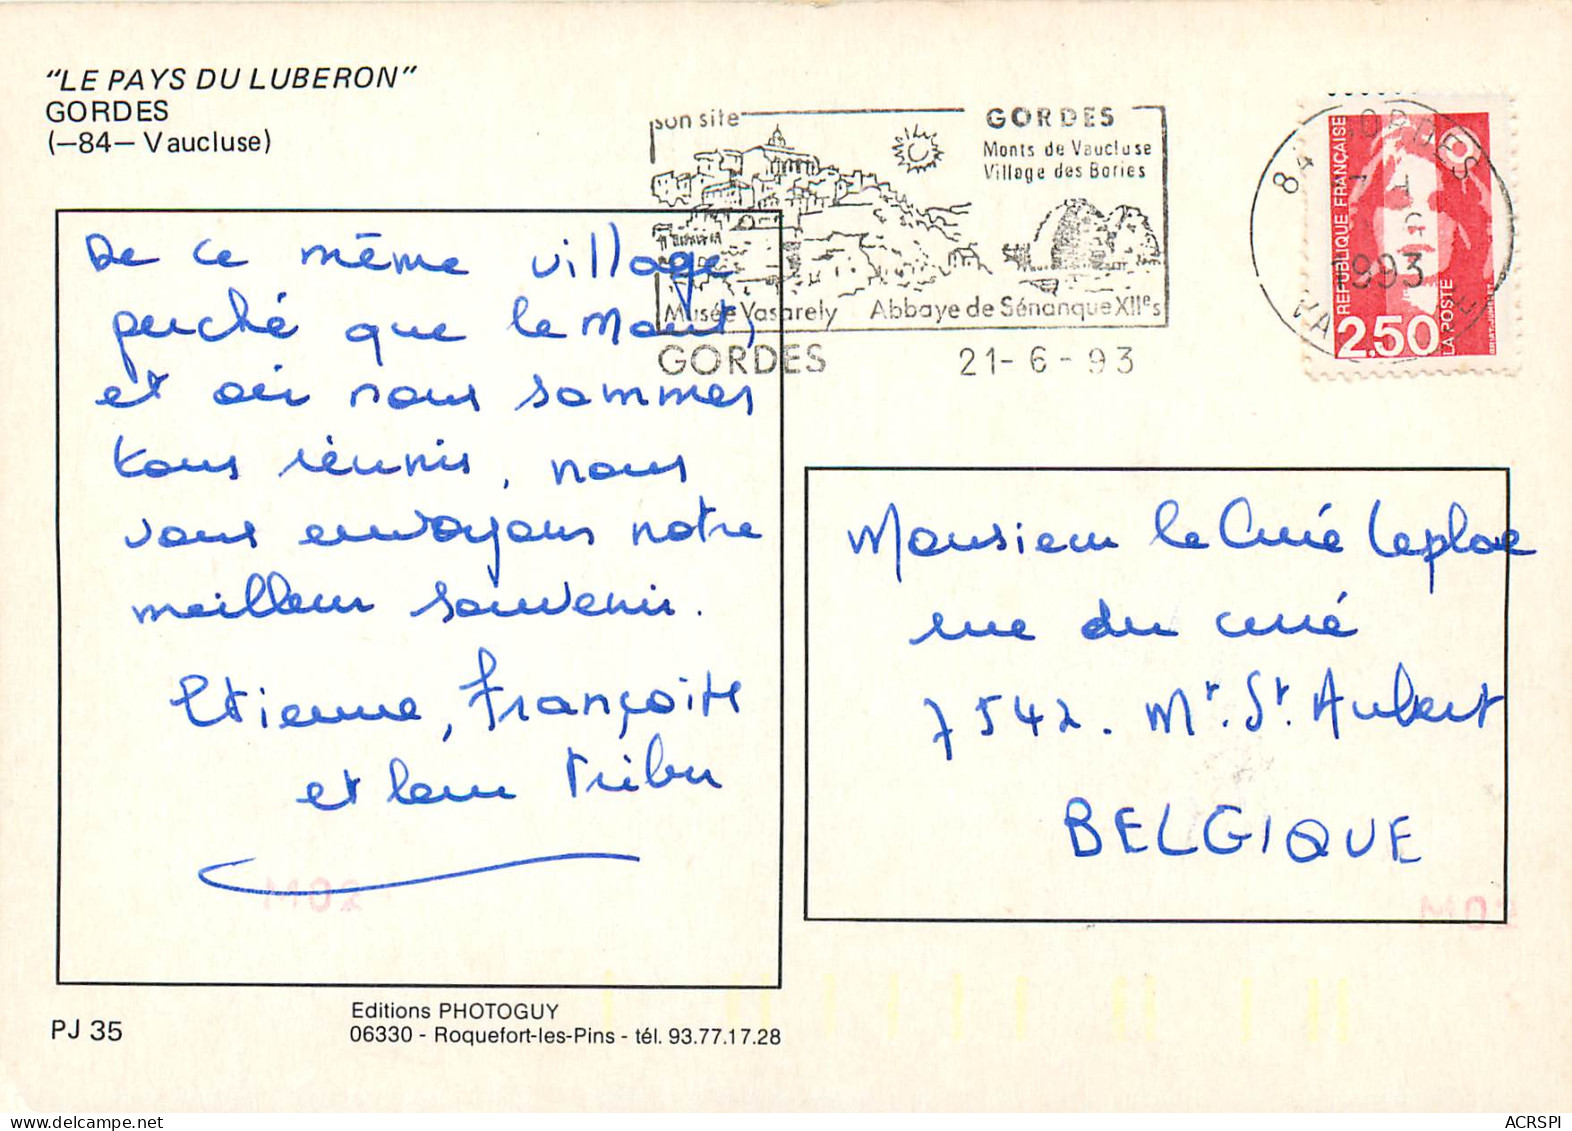 "LE PAYS DU LUBERON"
GORDES
(—84— Vaucluse)
son site
GORDES
Monts de Vaucluse
Village des Bories
Musée Vasarely Abbaye de Sénanque XIIe s
GORDES 21-6-93
84 GORDES
1993
REPUBLIQUE FRANÇAISE
2,50
LA POSTE
De ce même village
perché que le Mont,
et où nous sommes
tous réunis, nous
vous envoyons notre
meilleur souvenir.
Etienne, Françoise
et leur tribu
Monsieur le Curé Leplae
rue du curé
7542. Mt. St. Aubert
BELGIQUE
M02
PJ 35
Editions PHOTOGUY
06330 - Roquefort-les-Pins - tél. 93.77.17.28
ACRSPI